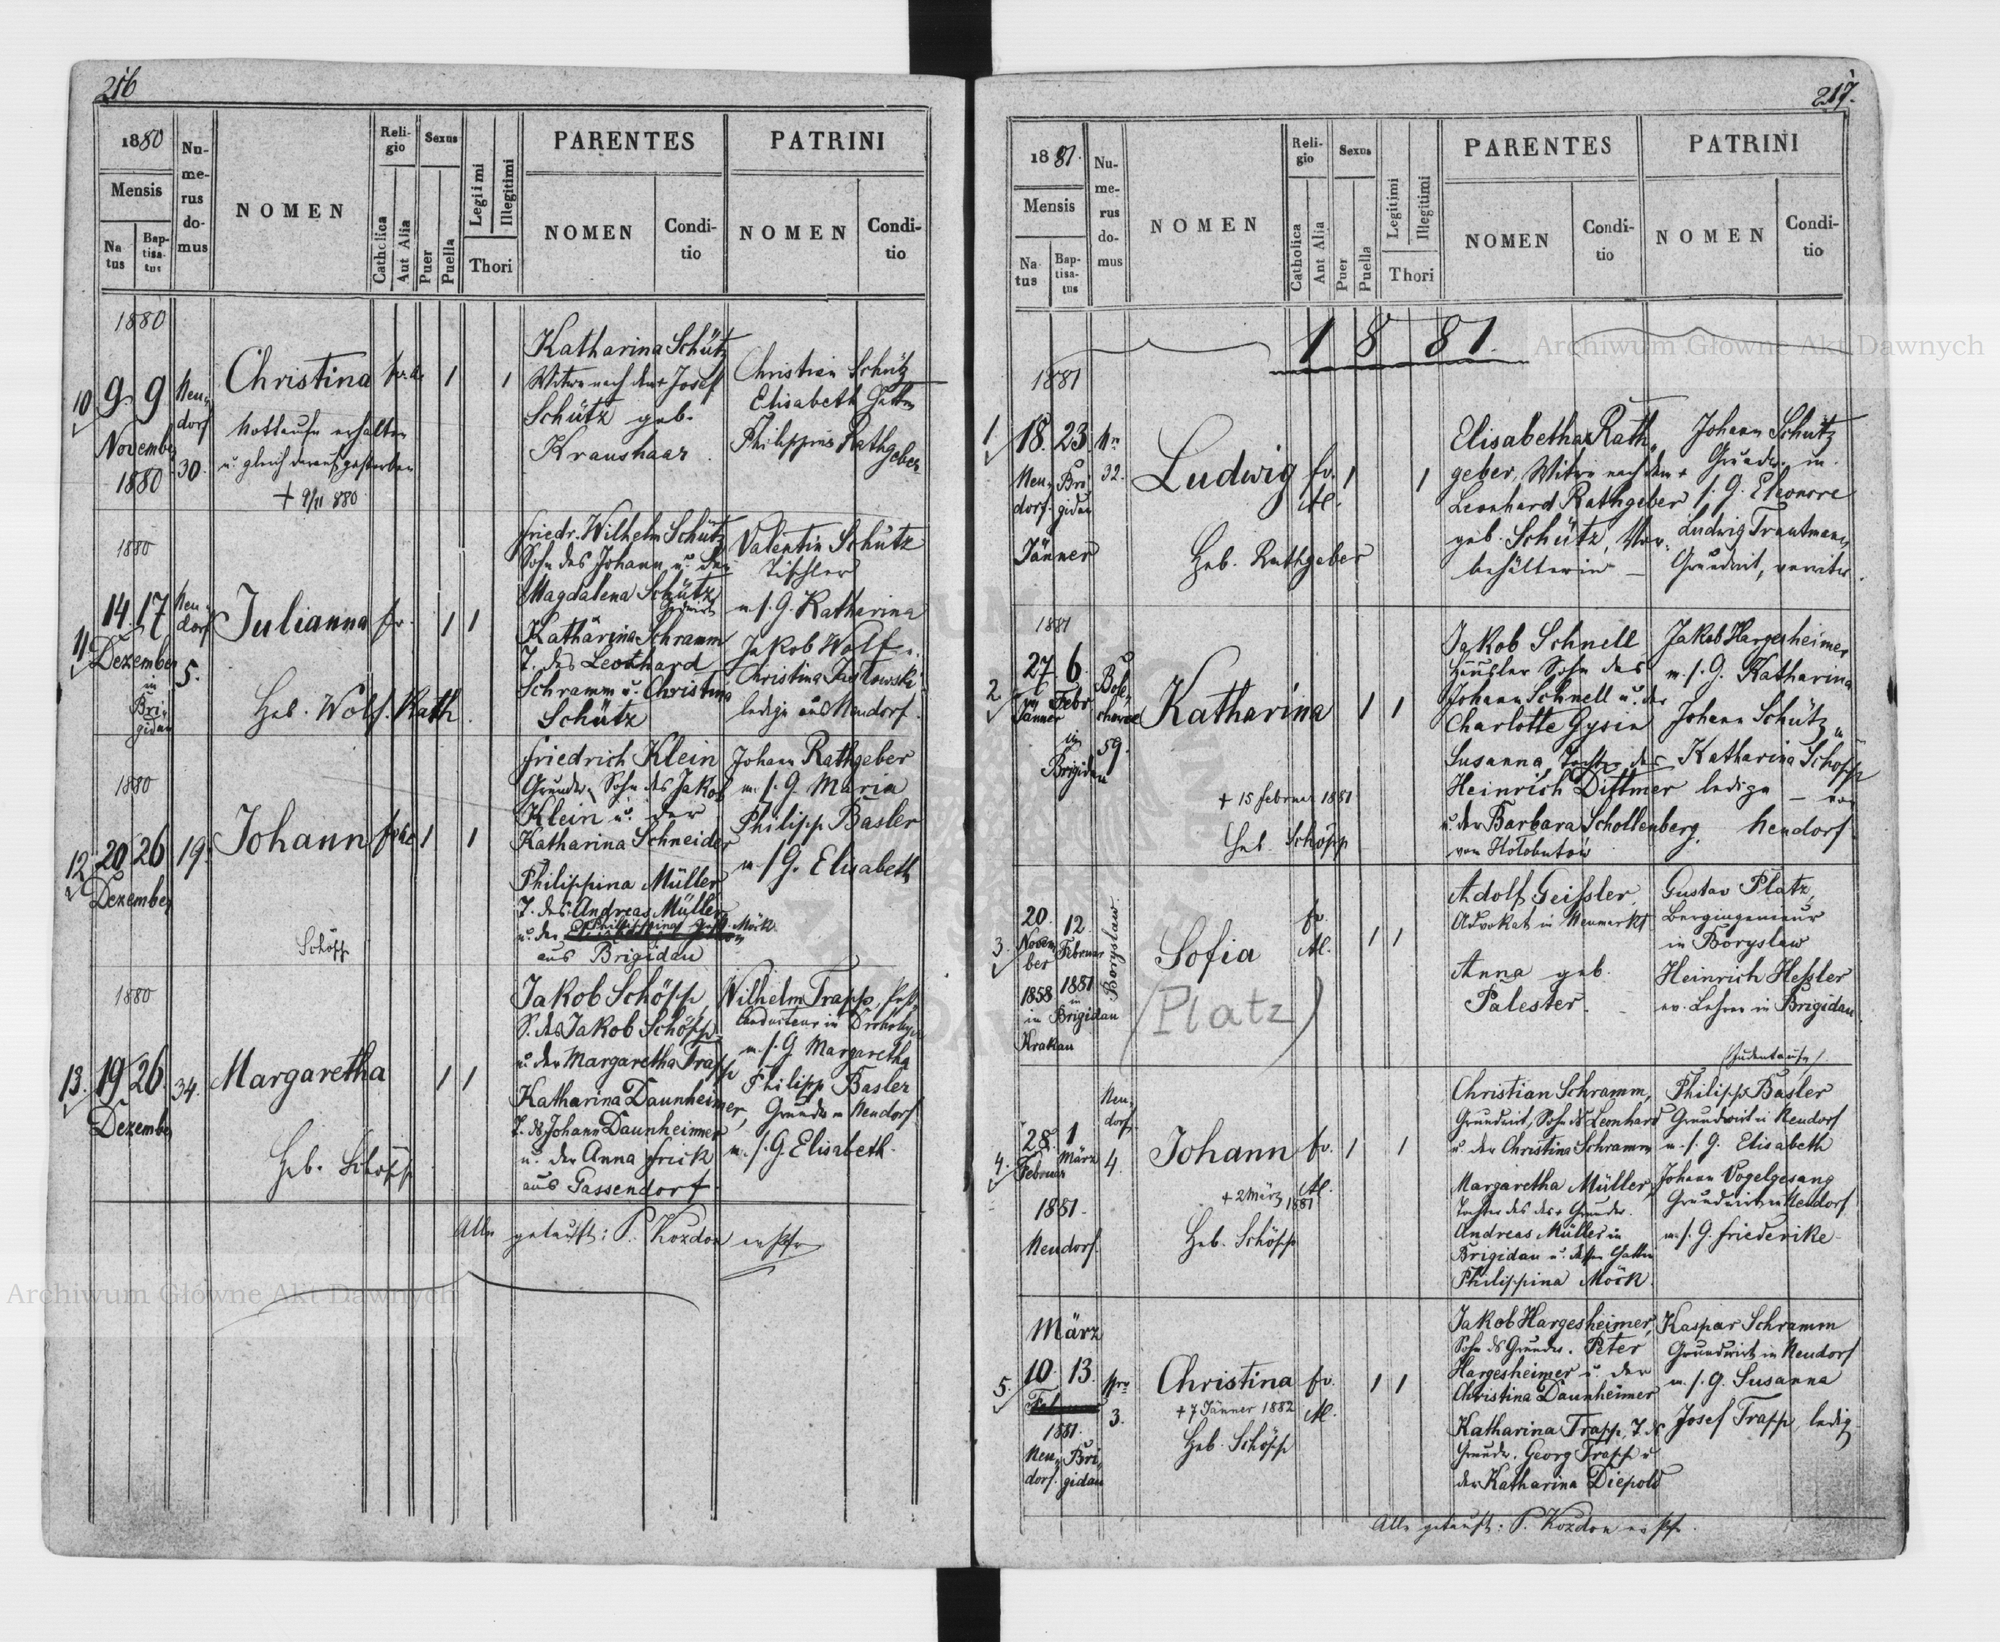 216
1880
Mensis
Na
tus
Bap-
tisa-
tus
Nu-
me-
rus
do-
mus
NOMEN
Reli-
gio
Catholica
Aut Alia
Sexus
Puer
Puella
Legitimi
Illegitimi
Thori
PARENTES
NOMEN
Condi-
tio
PATRINI
NOMEN
Condi-
tio
1880
10
9 9
November
1880
Neu-
dorf
30.
Christina
Nottaufe erhalten
u. gleich darauf gestorben
+ 9/11 880
1 1
Katharina Schütz
Witwe nach dem + Josef
Schütz geb.
Kraushaar.
Christian Schütz
Elisabeth Gattin
Philippine Rathgeber
1880
11
14. 17
Dezember
in
Bri-
gidau
Neu-
dorf
5.
Julianna
ev.
1 1
Heb. Wolf. Kath.
Friedr. Wilhelm Schütz
Sohn des Johann u. der
Magdalena Schütz
Katharina Schramm
T. des Leonhard
Schramm u. Christina
Schütz
Valentin Schütz
Tischler
u. s. G. Katharina
Jakob Wolf u.
Christina
ledige aus Neudorf.
1880
12
20 26
Dezember
19.
Johann
1 1
Schöpp
Friedrich Klein
Grundw. Sohn des Jakob
Klein u. der
Katharina Schneider
Philippina Müller
T. des Andreas Müller
u. der Philippina geb. Möck
aus Brigidau
Johann Rathgeber
u. s. G. Maria
Philipp Basler
u. s. G. Elisabeth
1880
13.
19 26.
Dezember
34.
Margaretha
1 1
Heb. Schöpp
Jakob Schöpp,
S. des Jakob Schöpp
u. der Margaretha Trapp
Katharina Daunheimer,
T. ds Johann Daunheimer
u. der Anna Frick
aus Gassendorf.
Wilhelm Trapp, Post-
conducteur in Drohobycz
u. s. G. Margaretha
Philipp Basler
Grundw. in Neudorf
u. s. G. Elisabeth.
Alle getauft: P. Kozdon ev. Pfr.
Archiwum Główne Akt Dawnych
217.
1881.
Mensis
Na
tus
Bap-
tisa-
tus
Nu-
me-
rus
do-
mus
NOMEN
Reli-
gio
Catholica
Aut Alia
Sexus
Puer
Puella
Legitimi
Illegitimi
Thori
PARENTES
NOMEN
Condi-
tio
PATRINI
NOMEN
Condi-
tio
1881.
Archiwum Główne Akt Dawnych
1881
1
18. 23.
Neu-
dorf.
Bri-
gidau
Jänner
Nr.
32.
Ludwig
ev.
1 1
Heb. Rathgeber
Elisabetha Rath-
geber, Witwe nach dem +
Leonhard Rathgeber
geb. Schütz, Vor-
behälterin
Johann Schütz
Grundw. u.
s. G. Eleonore
Ludwig Trautmann,
Grundwirt, verwitw.
1881
2
27 6
Jänner
Febr
in
Brigidau
Bole-
chow
59.
Katharina
1 1
+ 15 Februar 1881
Heb. Schöpp
Jakob Schnell
Häusler Sohn des
Johann Schnell u. der
Charlotte Gysin
Susanna Tochter des
Heinrich Dittmer
u. der Barbara Schollenberg.
von Hołobutów
Jakob Hargesheimer
u. s. G. Katharina
Johann Schütz u.
Katharina Schöpp
ledige — von
Neudorf.
3.
20.
Novem-
ber
1858
in
Krakau
12
Februar
1881
in
Brigidau
Boryslaw.
Sofia
(Platz)
ev.
1 1
Adolf Geissler,
Advokat in Neumarkt
Anna geb.
Palester.
Gustav Platz,
Bergingenieur
in Boryslaw
Heinrich Hessler
ev. Lehrer in Brigidau.
(Judentaufe)
4.
28. 1
Februar
März
1881.
Neudorf.
Neu-
dorf
4.
Johann
ev.
1 1
+ 2 März 1881
Heb. Schöpp
Christian Schramm,
Grundwirt, Sohn ds Leonhard
u. der Christina Schramm
Margaretha Müller,
Tochter des des + Grundw.
Andreas Müller in
Brigidau u. dessen Gattin
Philippina Möck.
Philipp Basler
Grundwirt in Neudorf
u. s. G. Elisabeth
Johann Vogelgesang
Grundwirt in Neudorf
u. s. G. Friederike
März
5.
10. 13.
1881.
Neu-
dorf.
Bri-
gidau
Nro
3.
Christina
ev.
1 1
+ 7 Jänner 1882
Heb. Schöpp
Jakob Hargesheimer,
Sohn ds Grundw. Peter
Hargesheimer u. der
Christina Daunheimer
Katharina Trapp, T. ds
Grundw. Georg Trapp u
der Katharina Diepold
Kaspar Schramm
Grundwirt in Neudorf
u. s. G. Susanna
Josef Trapp, ledig.
Alle getauft: P. Kozdon ev. Pfr.